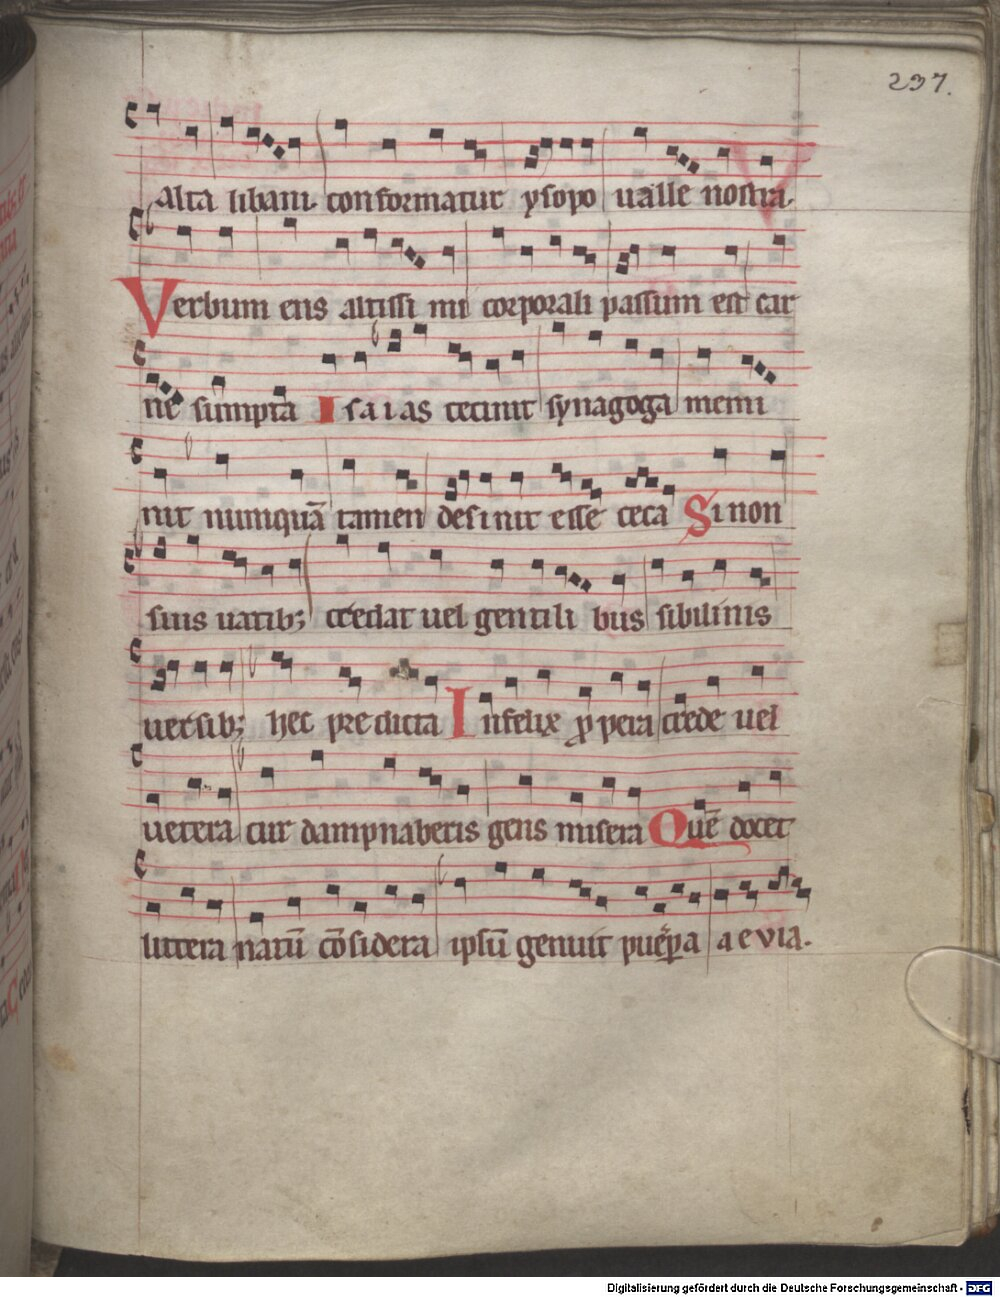 237.
alta libani. conformatur ysopo ualle nostra.
Verbum ens altissi mi corporali passum est car
ne sumpta Isaias cecinit synagoga memi
nit numquā tamen desinit esse ceca Si non
suis uatib; credat uel gentili bus sibilinis
uersib; hec predicta Infelix ppera crede uel
uetera cur dampnaberis gens misera Quē docet
littera natū cōsidera ipsū genuit puerpa aevia.
Digitalisierung gefördert durch die Deutsche Forschungsgemeinschaft - DFG